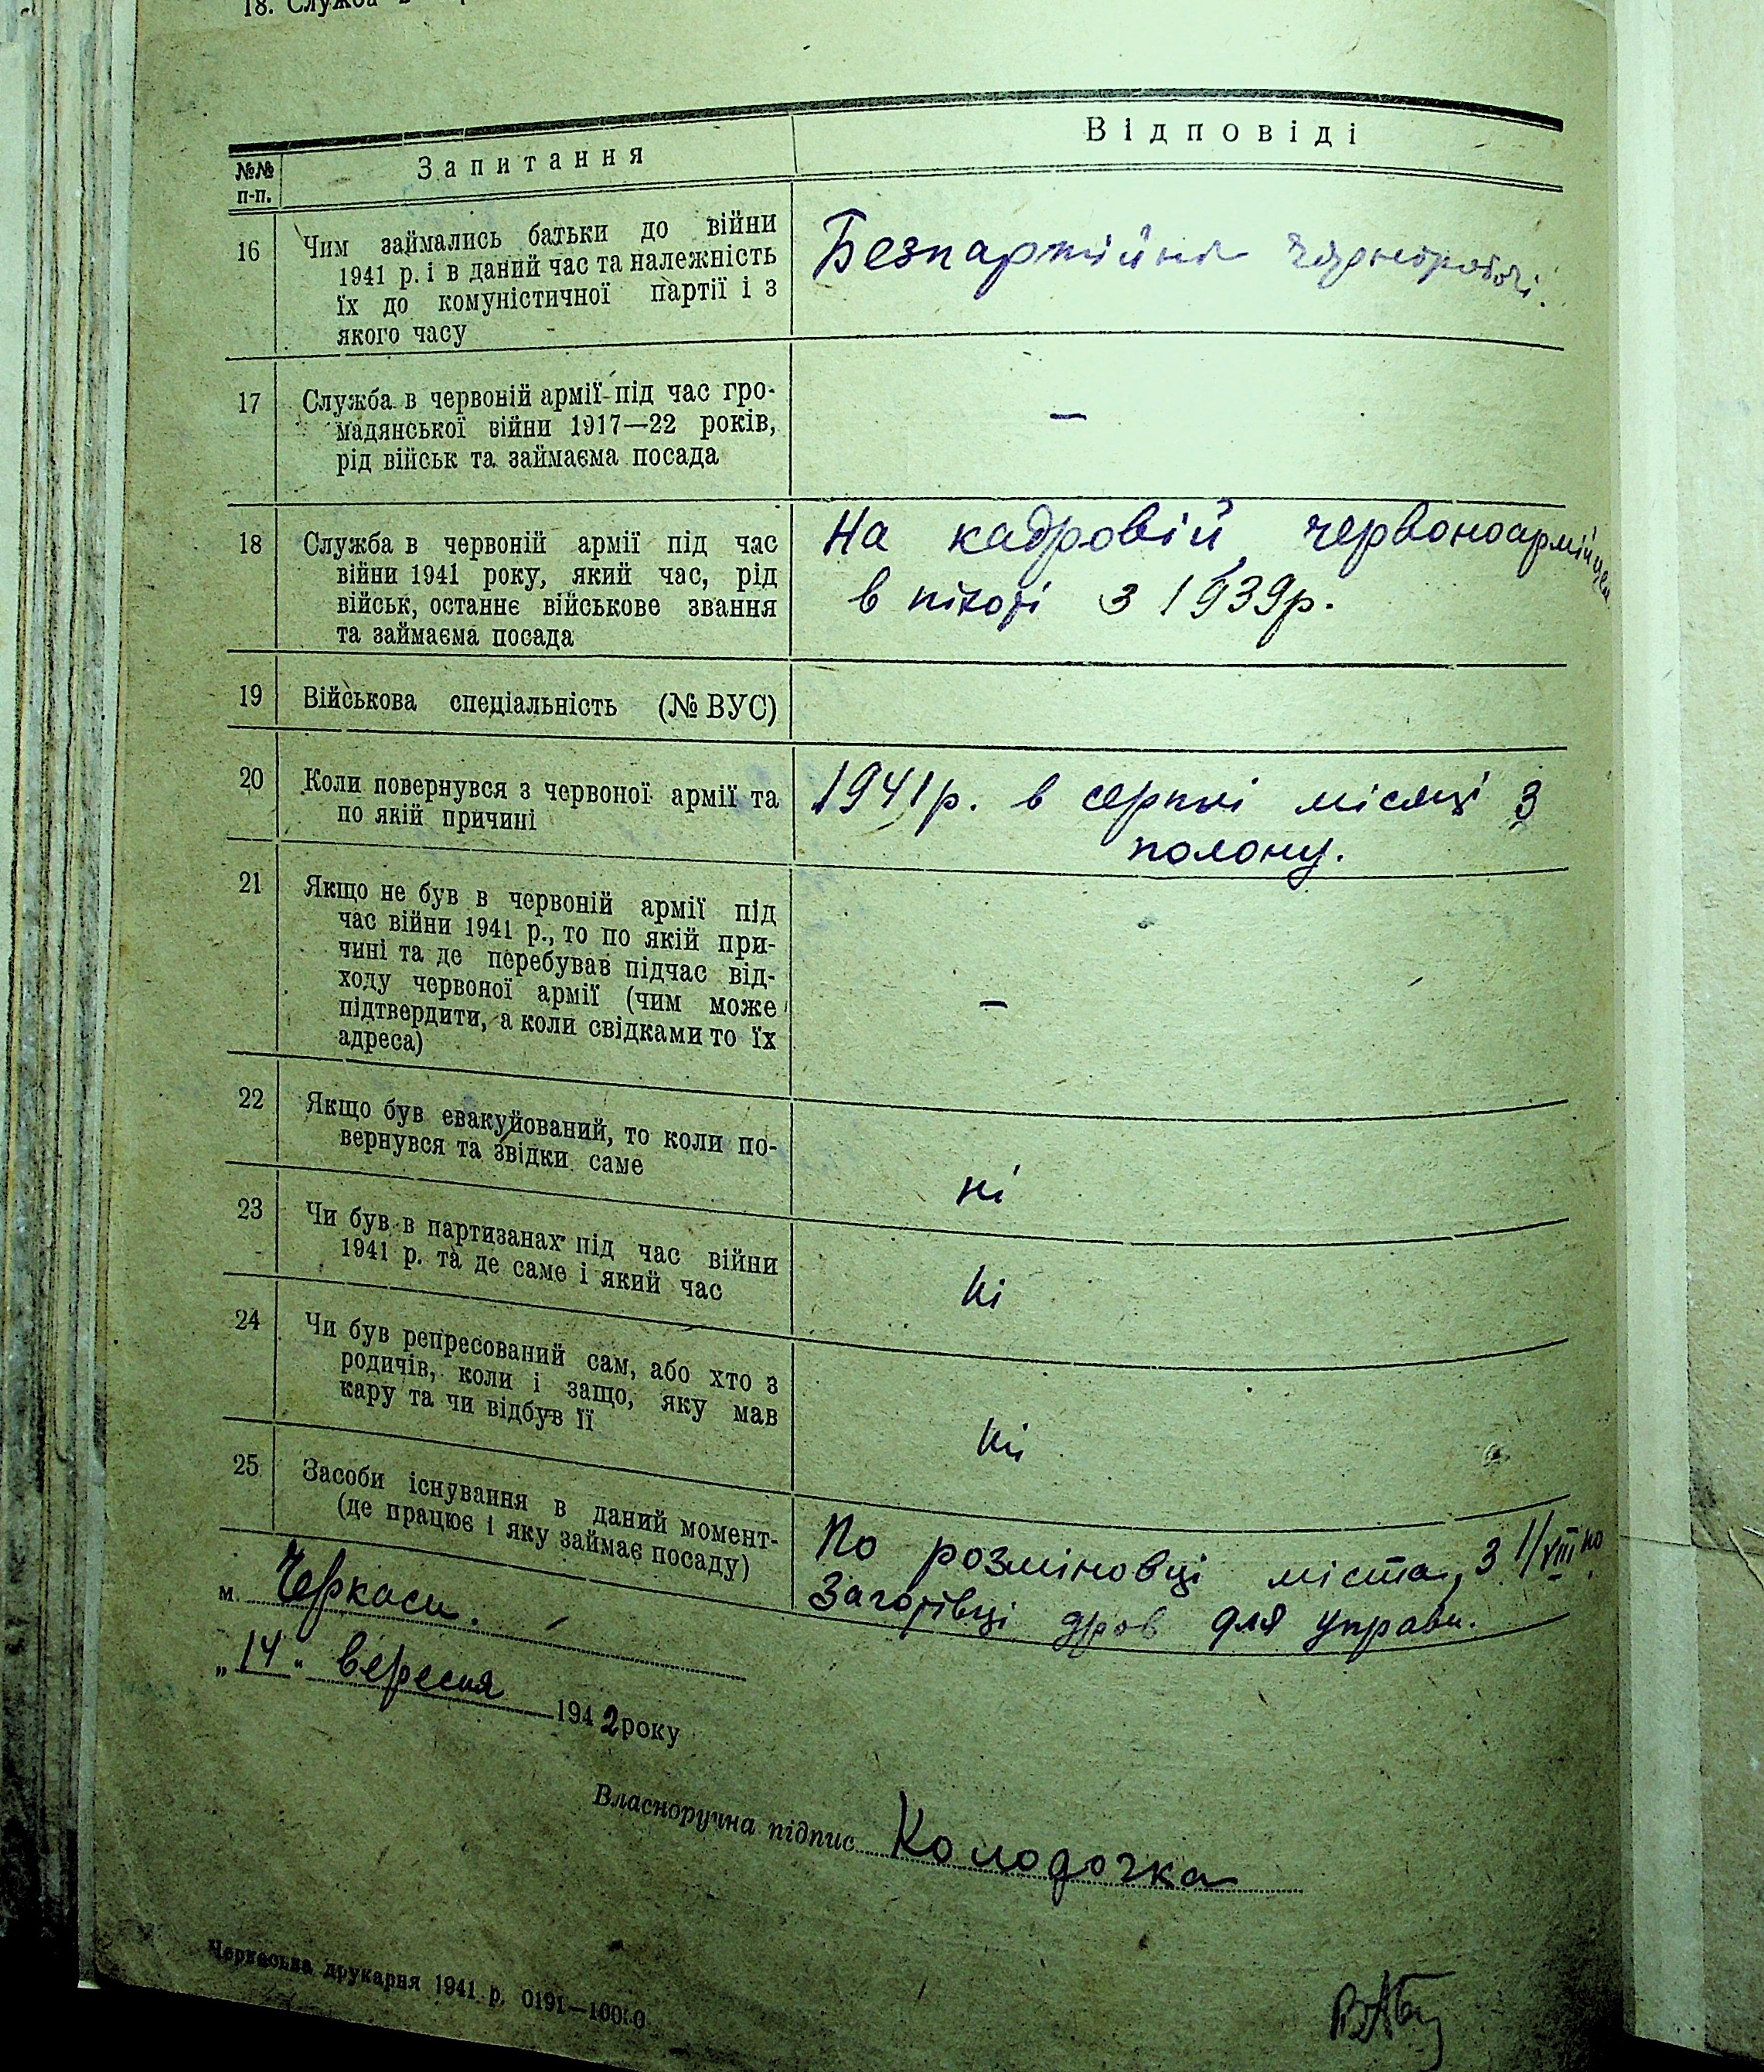 18. Служба в
№№ п-п.
Запитання
Відповіді
16
Чим займались батьки до війни
1941 р. і в даний час та належність
їх до комуністичної партії і з
якого часу
Безпартійні чорноробочі.
17
Служба в червоній армії під час гро-
мадянської війни 1917—22 років,
рід військ та займаєма посада
—
18
Служба в червоній армії під час
війни 1941 року, який час, рід
військ, останнє військове звання
та займаєма посада
На кадровій, червоноармійцем
в піхоті з 1939р.
19
Військова спеціальність (№ ВУС)
20
Коли повернувся з червоної армії та
по якій причині
1941р. в серпні місяці з
полону.
21
Якщо не був в червоній армії під
час війни 1941 р., то по якій при-
чині та де перебував підчас від-
ходу червоної армії (чим може
підтвердити, а коли свідками то їх
адреса)
—
22
Якщо був евакуйований, то коли по-
вернувся та звідки саме
ні
23
Чи був в партизанах під час війни
1941 р. та де саме і який час
ні
24
Чи був репресований сам, або хто з
родичів, коли і защо, яку мав
кару та чи відбув її
ні
25
Засоби існування в даний момент-
(де працює і яку займає посаду)
По розміновці міста, з 1/VIII по
Заготівці дров для управи.
м. Черкаси.
„14" вересня 1942 року
Власноручна підпис Колодочка
Черкаська друкарня 1941 р. 0191—10000